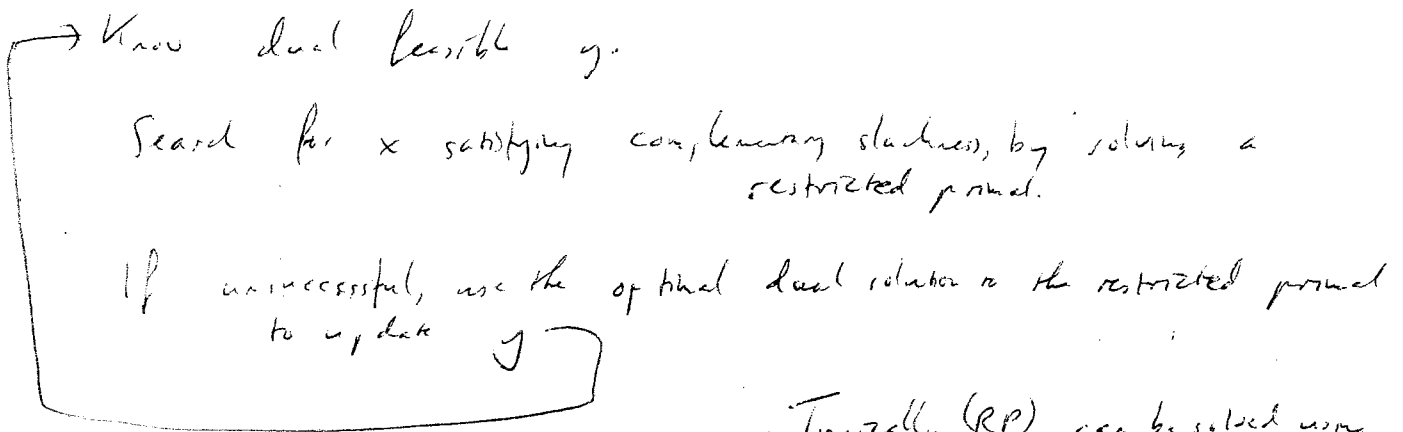 Know dual feasible y.
Search for x satisfying complementary slackness, by solving a
restricted primal.
If unsuccessful, use the optimal dual solution to the restricted primal
to update y
Typically (RP) can be solved using